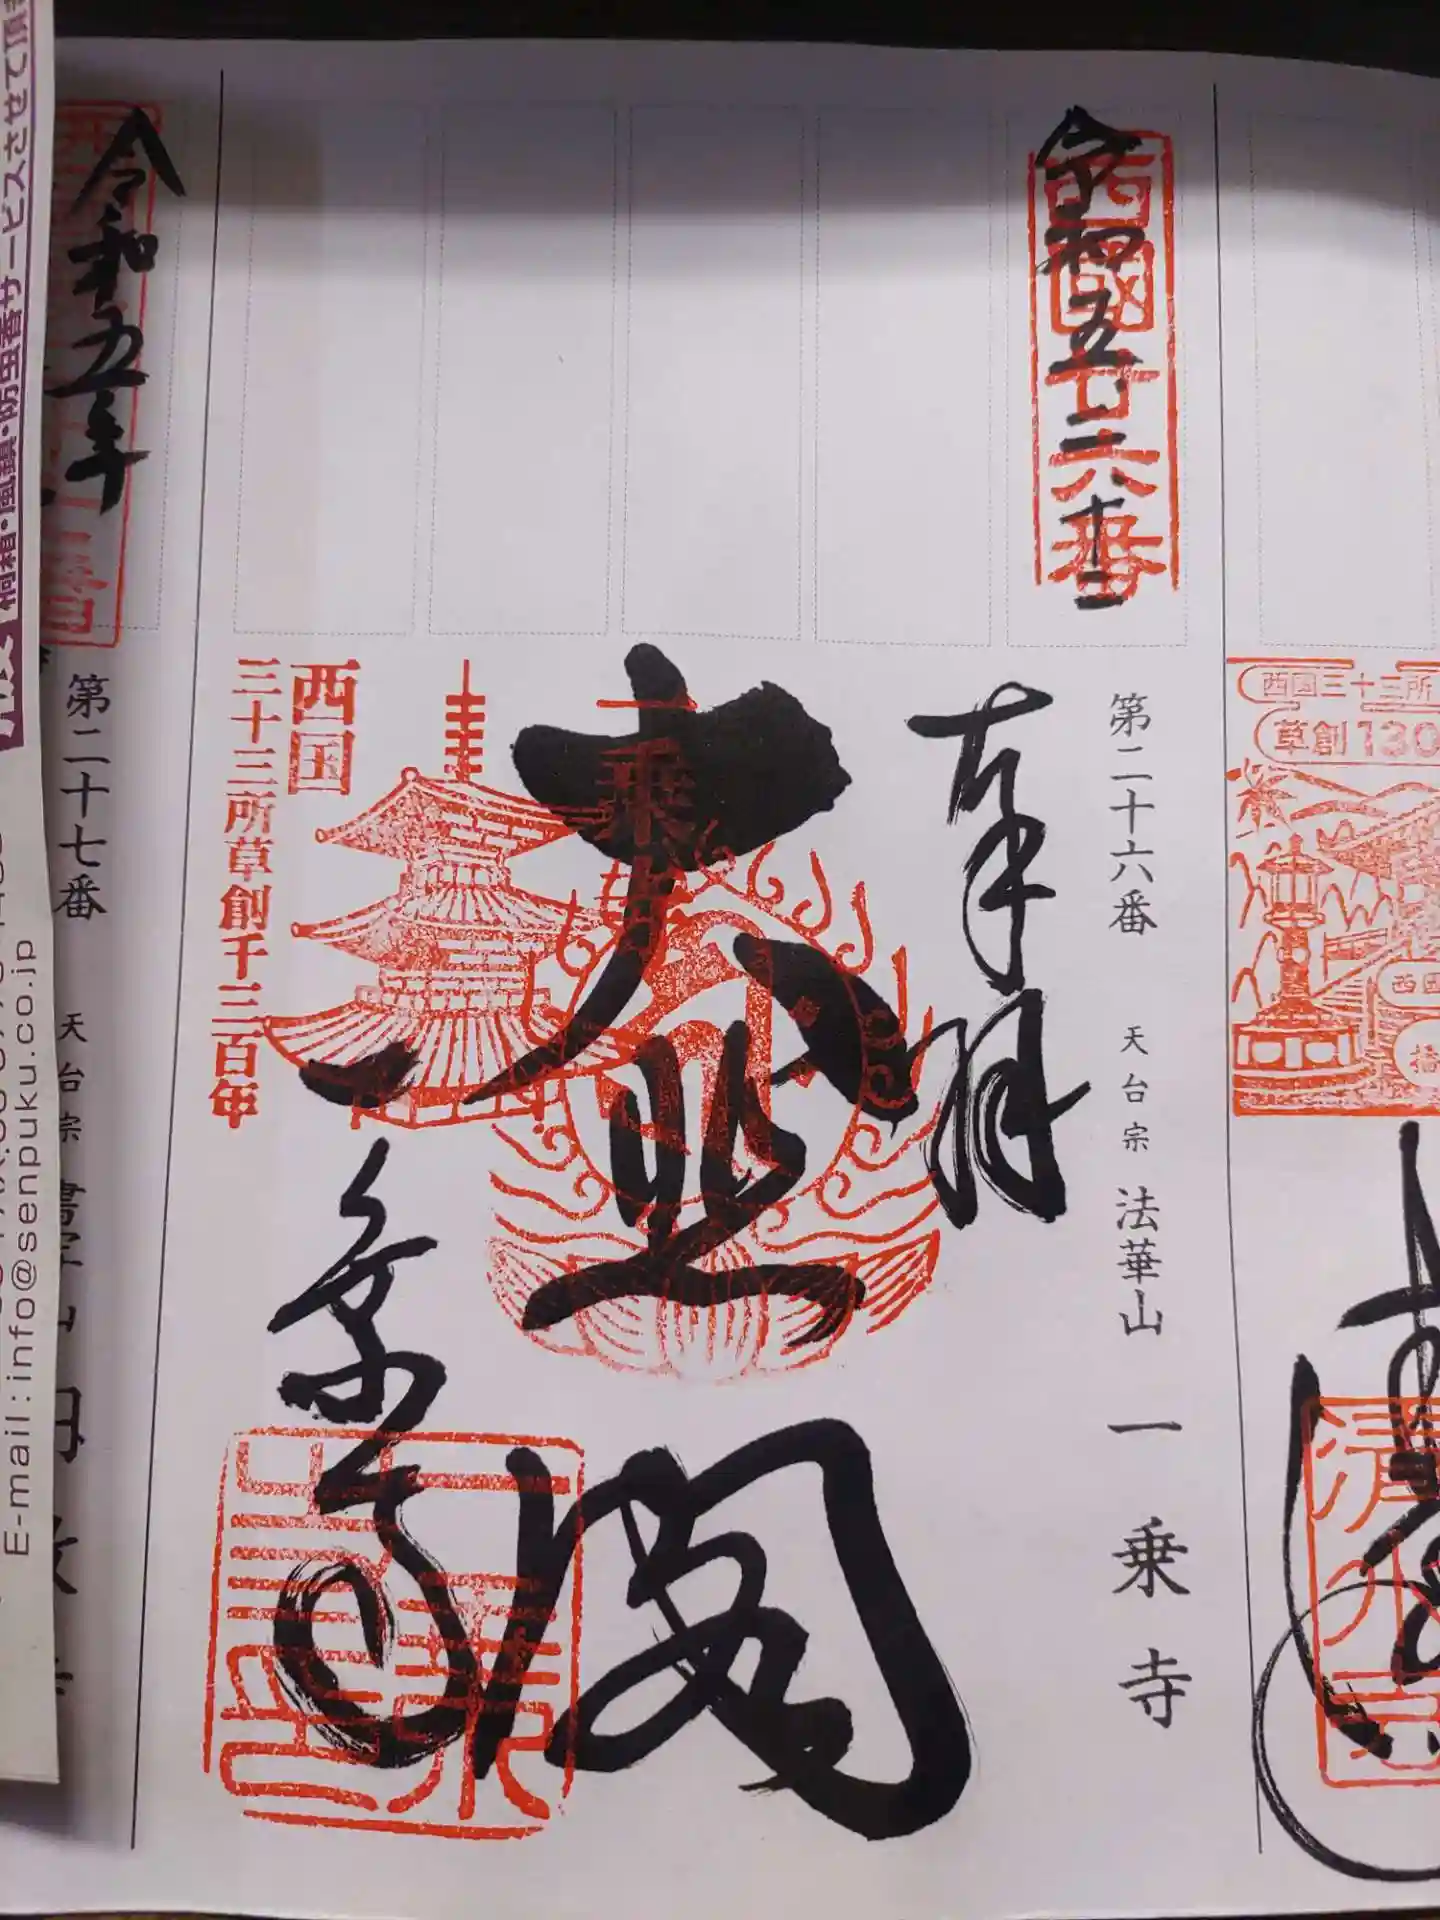 令和五・二・十二
西國廿六番
第二十六番 天台宗 法華山 一乗寺
奉拝
大悲閣
一乗
一乗寺
西国
三十三所草創千三百年
令和五年
第二十七番 天台宗 書写山 円教寺
桐箱・風鎮・防虫香サービスさせて頂き
E-mail:info@senpuku.co.jp
西国三十三所
草創130
西国
清水寺